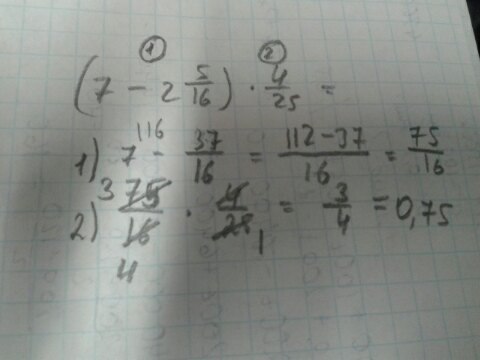 ① ②
(7 - 2 5/16) · 4/25 =
1) 7 |16 - 37/16 = 112-37/16 = 75/16
2) 3 75/16 4 · 4/25 1 = 3/4 = 0,75